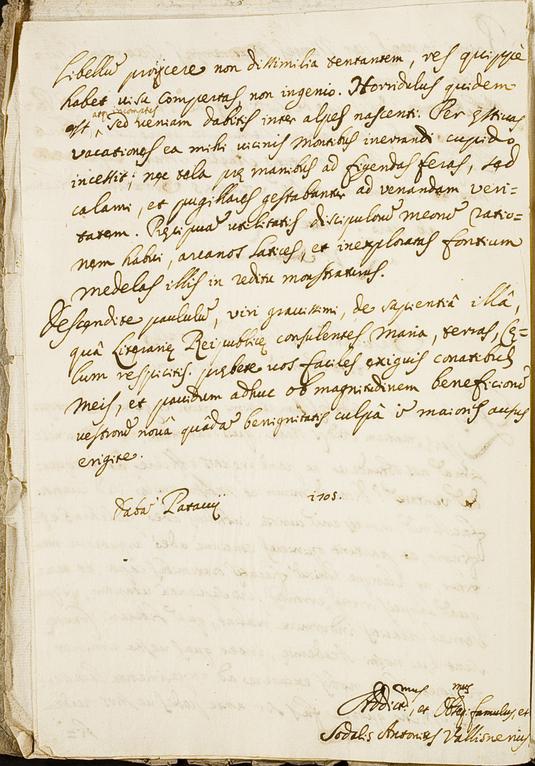 Libellũ proijcere non dissimilia tentantem, res quippè
habet visu compertas non ingenio. Horridulus quidem
est, atq; incomptus sed veniam dabitis inter alpes nascenti. Per estivas
vacationes ea mihi vicinis montibus inerrandi cupido
incessit; nec tela præ manibus ad figendas feras, sed
calami, et pugillares gestabantur ad venandam veri-
tatem. Precipuã utilitatis discipulorũ meorũ ratio-
nem habui, arcanos latices, et inexploratas fontium
medelas illis in reditu monstraturus.
Descendite paululũ, viri gravissimi, de sapientiâ illâ,
quâ Literariæ Reipublicæ consulentes Maria, terras, Cæ-
lum respicitis. præbete vos faciles exiguis conatibus
meis, et pavidum adhuc ob magnitudinem beneficiorũ
vestrorũ novâ quadã benignitatis culpâ in maioris ausus
erigite.
Datũ Patavij 1705.
Addict.mus, et Obseq.mus famulus, et
Sodalis Antonius Vallisnerius